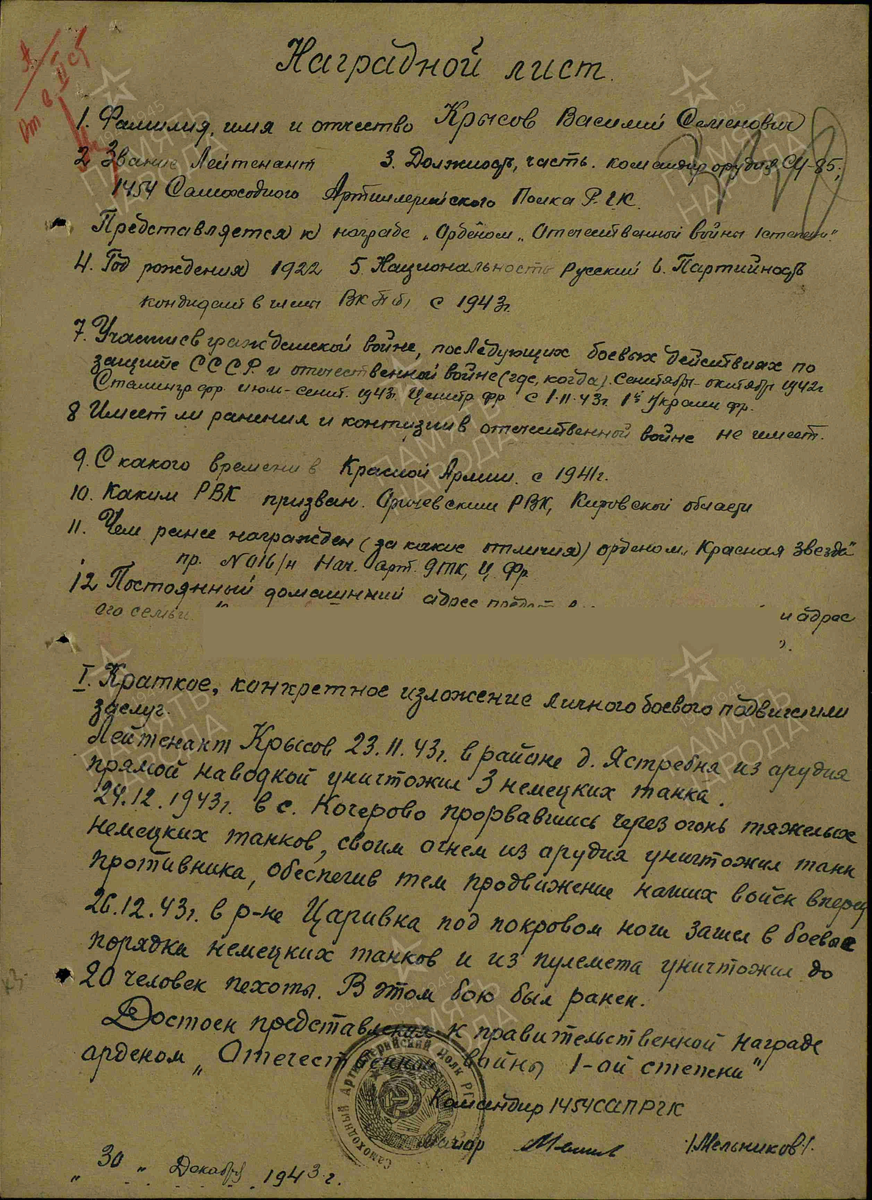 Наградной лист.
1. Фамилия, имя и отчество Крысов Василий Семенович
2. Звание Лейтенант 3. Должность, часть. командир орудия СУ-85,
1454 Самоходного Артиллерийского Полка РГК.
Представляется к награде „Орденом „Отечественной войны 1 степени"
4. Год рождения 1922 5. Национальность Русский 6. Партийность
кандидат в члены ВКП(б) с 1943г.
7. Участие в гражданской войне, последующих боевых действиях по
защите СССР и отечественной войне (где, когда). Сентябрь-октябрь 1942г
Сталингр фр. июль-сент. 1943г. Центр. фр. с 1.11.43г. 1й Украин фр.
8 Имеет ли ранения и контузии в отечественной войне не имеет.
9. С какого времени в Красной Армии. с 1941г.
10. Каким РВК призван. Оричевским РВК, Кировской области
11. Чем ранее награжден (за какие отличия) орденом „Красная Звезда"
пр. №016/н Нач. арт. 9ТК, Ц Фр
12 Постоянный домашний адрес и адрес
его семьи
I. Краткое, конкретное изложение личного боевого подвига или
заслуг.
Лейтенант Крысов 23.11.43г. в районе д. Ястребня из арудия
прямой наводкой уничтожил 3 немецких танка.
24.12.1943г. в с. Кочерово прорвавшись через огонь тяжелых
немецких танков, своим огнем из арудия уничтожил танк
противника, обеспечив тем продвижение наших войск вперед
26.12.43г. в р-не Царивка под покровом ночи зашел в боевые
порядки немецких танков и из пулемета уничтожил до
20 человек пехоты. В этом бою был ранен.
Достоен представления к правительственной награде
арденом „Отечественной войны 1-ой степени"
Командир 1454 САП РГК
Майор /Мельников/.
„30" Декабря 1943г.
Самоходный Артиллерийский полк РГК
ПАМЯТЬ
НАРОДА